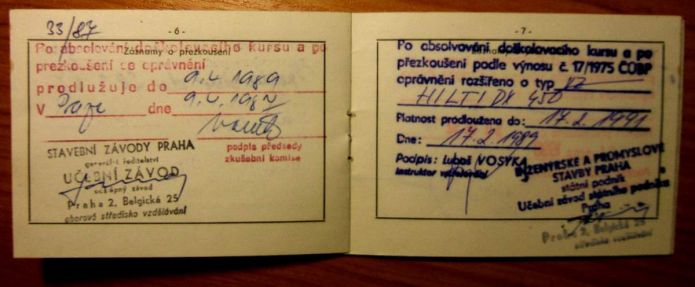 33/87
- 6 -
Záznamy o přezkoušení
Po absolvování doškolovacího kursu a po
přezkoušení se oprávnění
prodlužuje do 9.4.1989
V Praze dne 9.4.1987
podpis předsedy
zkušební komise
STAVEBNÍ ZÁVODY PRAHA
generální ředitelství
UČEBNÍ ZÁVOD
účelový závod
Praha 2, Belgická 25
oborové středisko vzdělávání
- 7 -
Po absolvování doškolovacího kursu a po
přezkoušení podle výnosu č. 17/1975 ČÚBP
oprávnění rozšířeno o typ
HILTI DX 450
Platnost prodloužena do: 17.2.1991
Dne: 17.2.1989
Podpis: Luboš VOSYKA
instruktor vstřelování
INŽENÝRSKÉ A PRŮMYSLOVÉ
STAVBY PRAHA
státní podnik
Učební závod státního podniku
Praha
Praha 2, Belgická 25
středisko vzdělávání